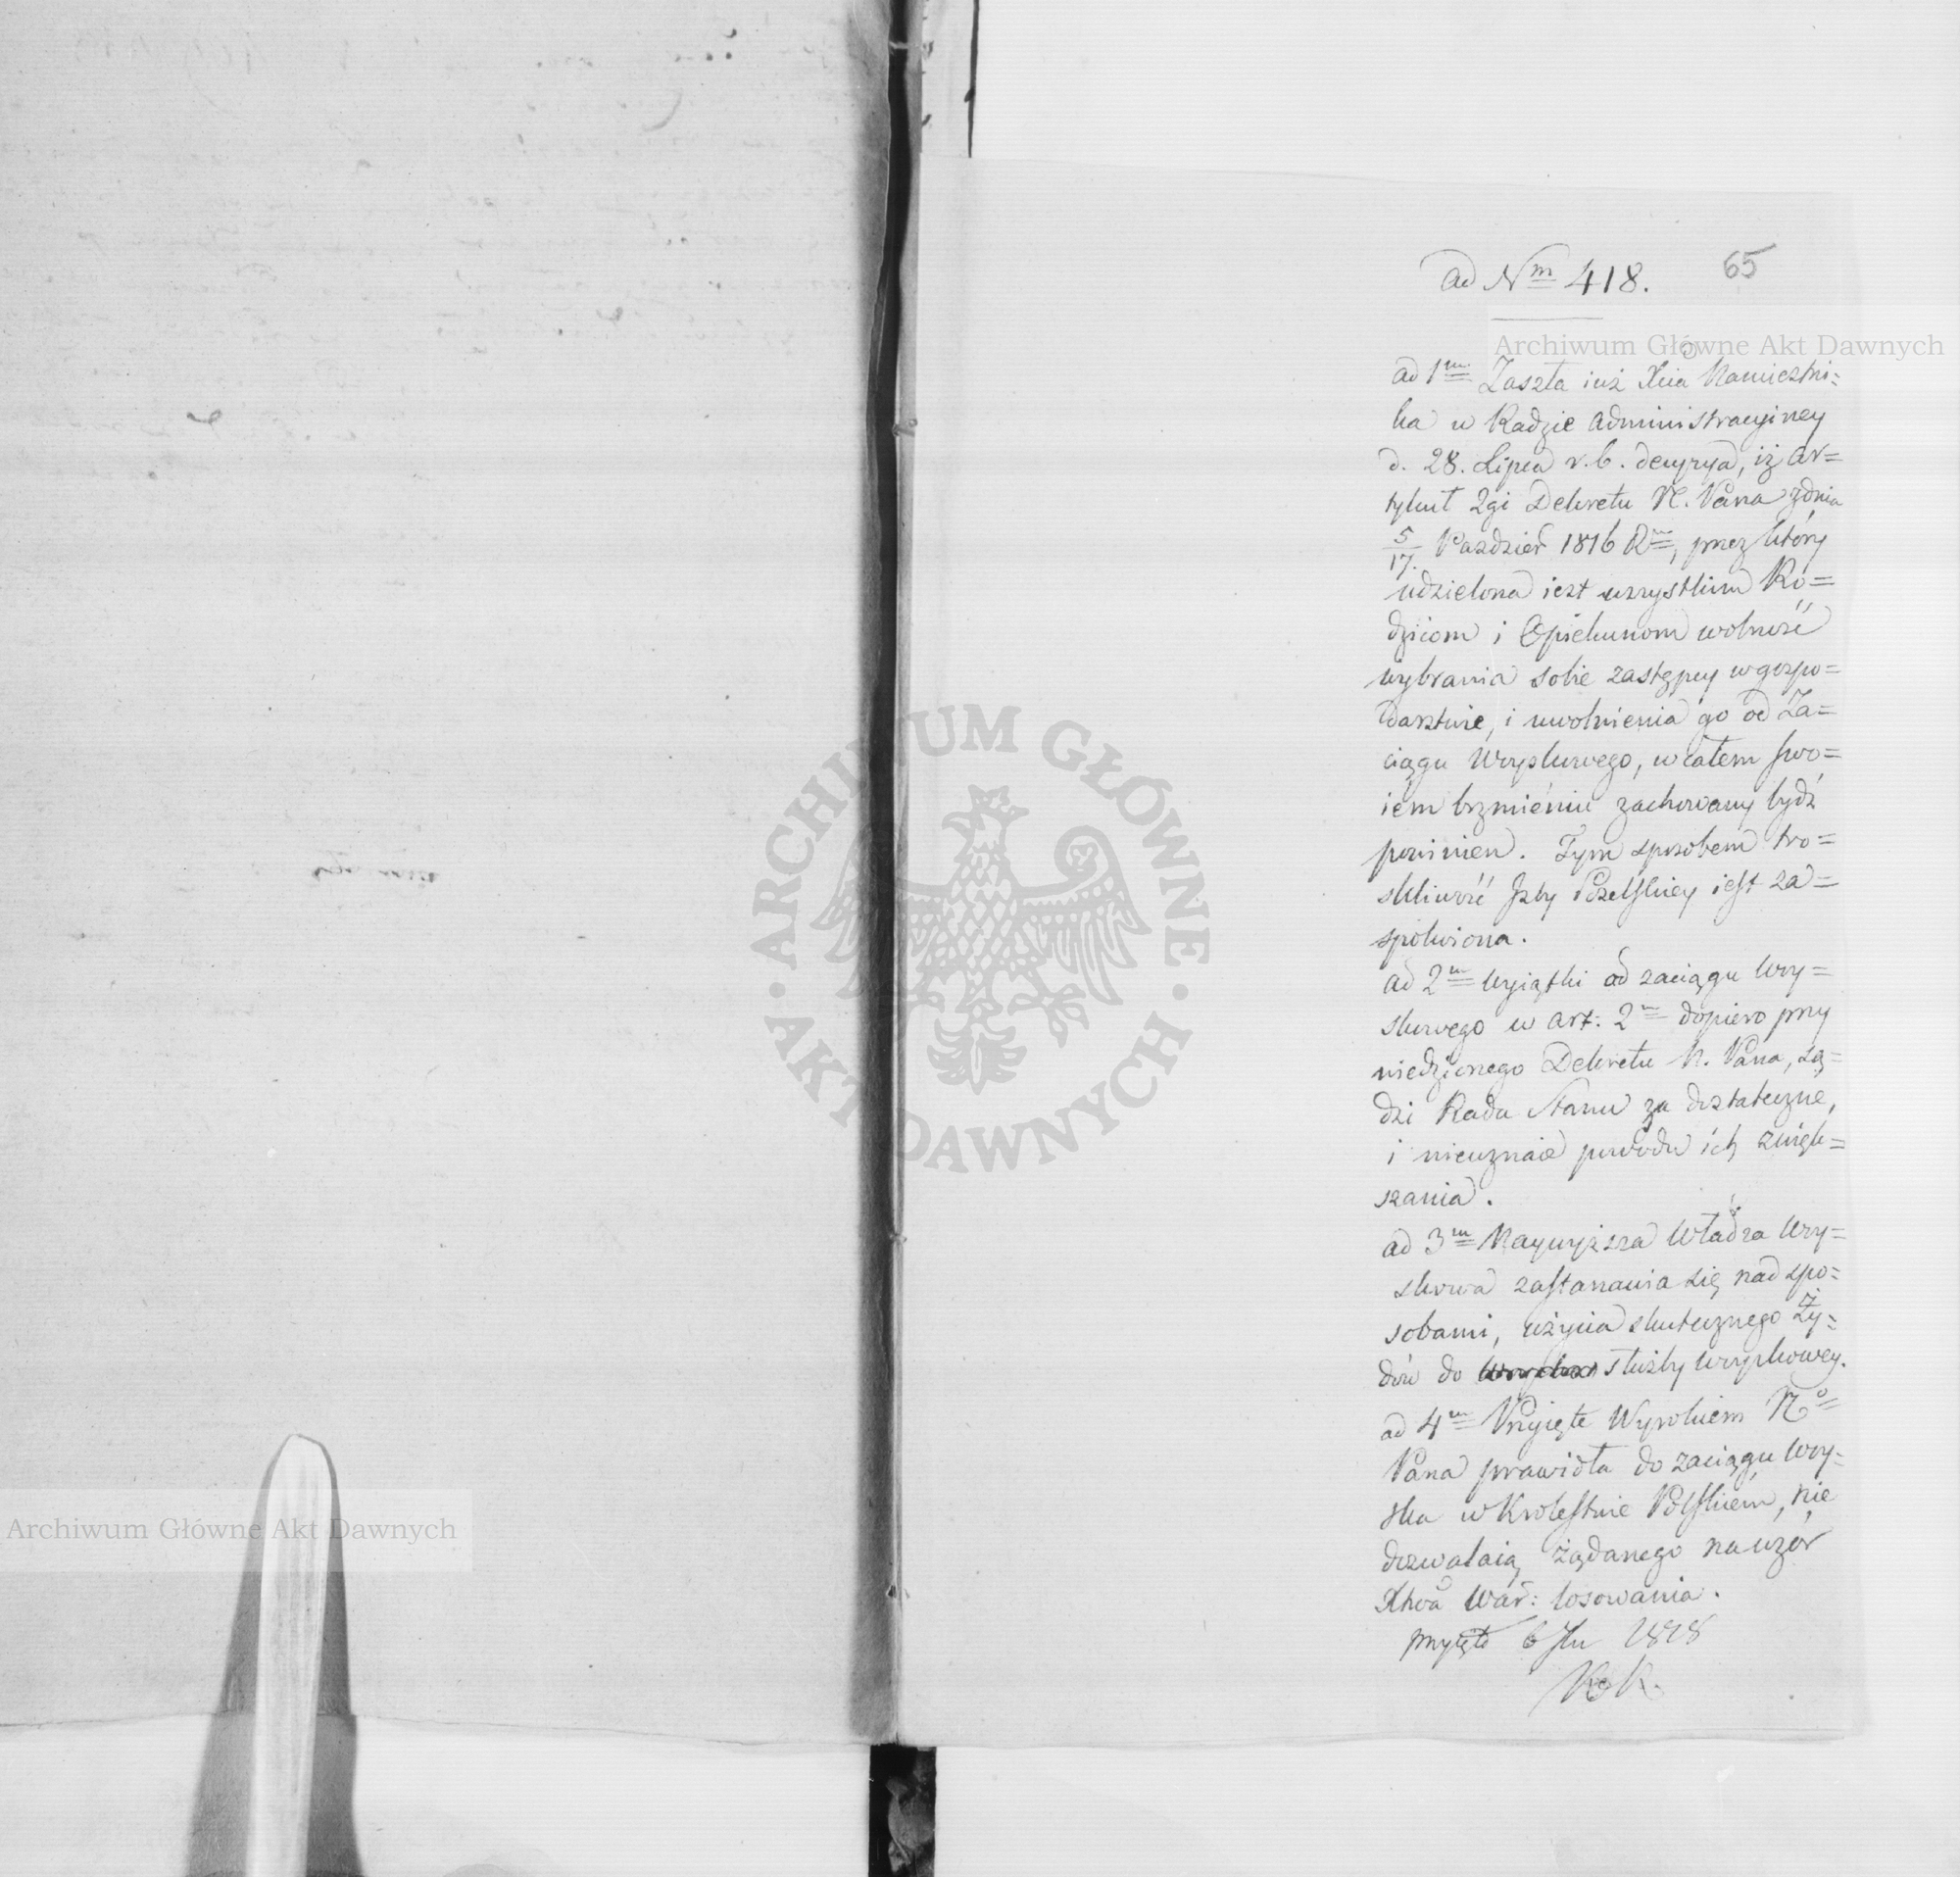 ad Nm 418.
65
ad 1m Zaszła iuż Xcia Namiestni=
ka w Radzie Administracyiney
d. 28. Lipca r. b. decyzya, iż ar=
tykuł 2gi Dekretu N. Pana z dnia
5/17. Paździer 1816 R, przez który
udzielona iest wszystkim Ro=
dzicom i Opiekunom wolność
wybrania sobie zastępcy w gospo=
darstwie, i uwolnienia go od Za=
ciągu Woyskowego, w całem swo=
iem brzmieniu zachowany bydź
powinien. Tym sposobem tro=
skliwość Jzby Poselskiey iest za=
spokoiona.
ad 2m wyiątki od zaciągu Woy=
skowego w art: 2m dopiero przy
wiedzionego Dekretu N. Pana, są=
dzi Rada Stanu za dostateczne,
i nieuznaie powodu ich zwięk=
szania.
ad 3m Naywyższa Władza Woy=
skowa zastanawia się nad spo=
sobami, użycia skutecznego Ży=
dów do służby woyskowey.
ad 4m Przyięte Wyrokiem No
Pana prawidła do zaciągu Woy=
ska w Krolestwie Polskiem, nie
dozwalaią żądanego na wzór
Xtwa War: losowania.
przyięto 1818
Archiwum Główne Akt Dawnych
Archiwum Główne Akt Dawnych
ARCHIWUM GŁÓWNE
AKT DAWNYCH